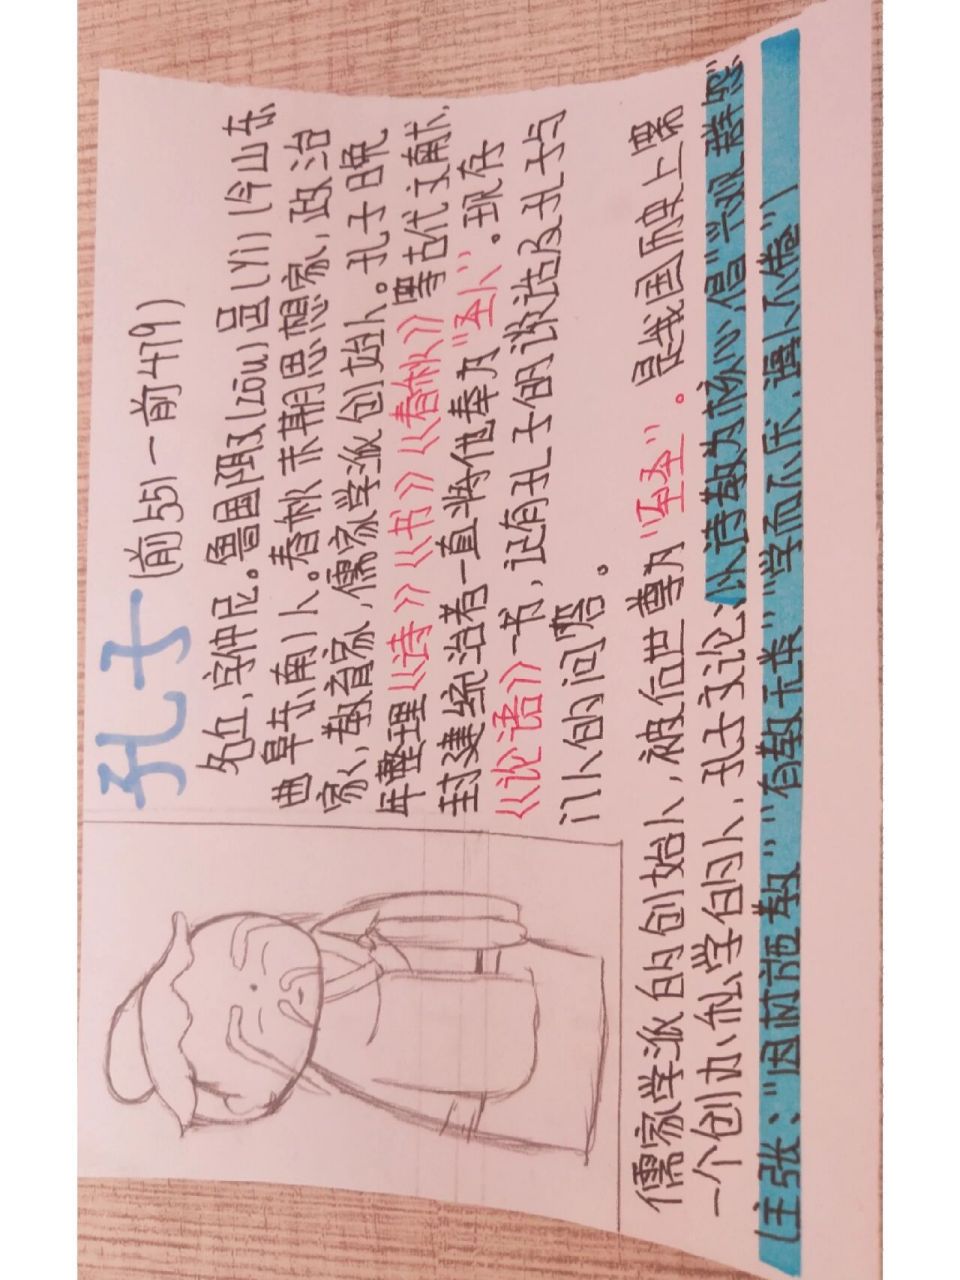 孔子
(前551一前479)
名丘,字仲尼。鲁国陬(zōu)邑(yì)(今山东
曲阜东南)人。春秋末期思想家,政治
家、教育家,儒家学派创始人。孔子晚
年整理《诗》《书》《春秋》等古代文献.
封建统治者一直将他奉为"圣人"。现存
《论语》一书,记有孔子的谈话及孔子与
门人的问答。
儒家学派的创始人,被后世尊为"至圣"。是我国历史上第
一个创办私学的人,孔子文论:以诗教为核心,倡"兴观群怨"
(主张:"因材施教""有教无类""学而不厌,诲人不倦")